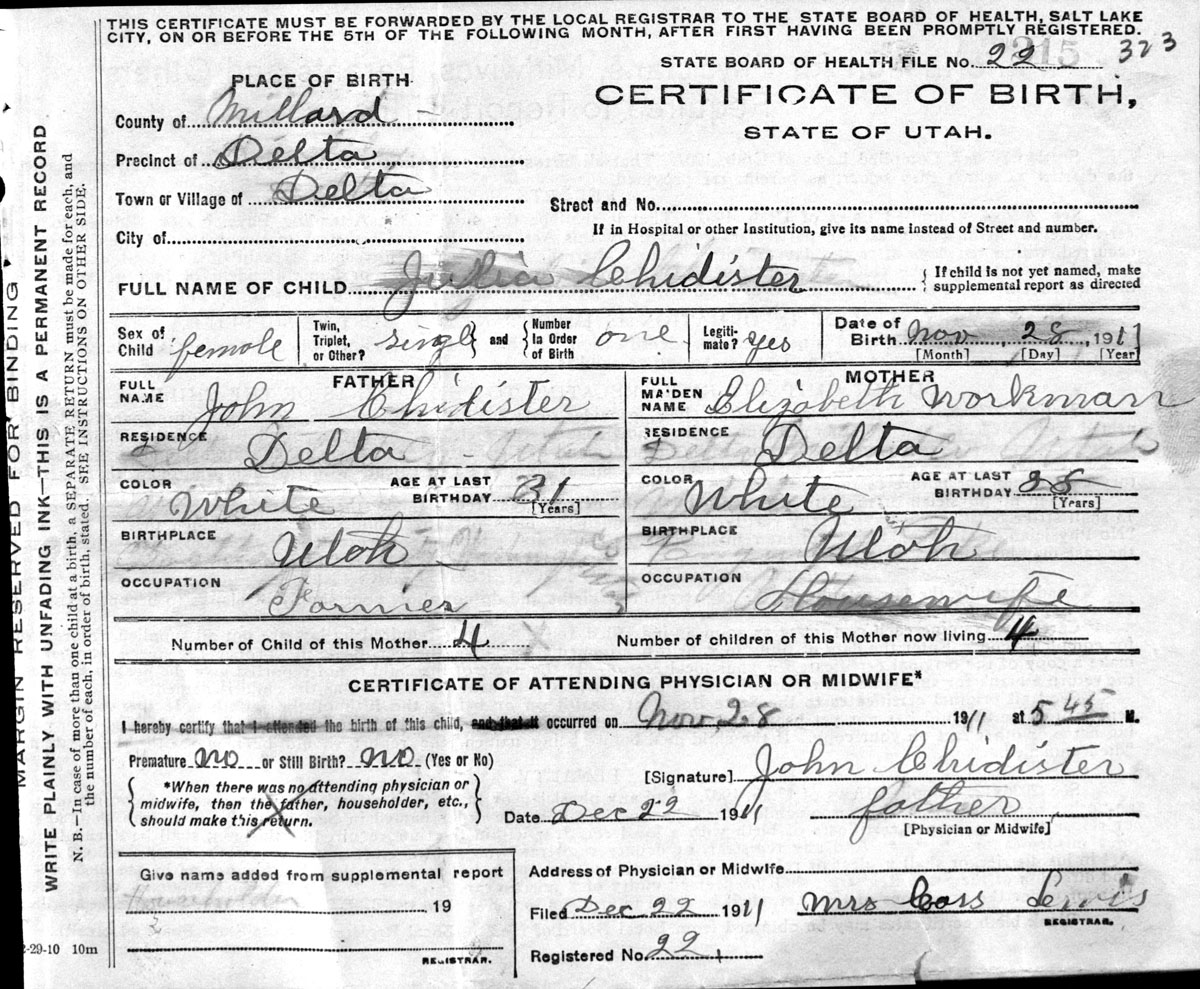 THIS CERTIFICATE MUST BE FORWARDED BY THE LOCAL REGISTRAR TO THE STATE BOARD OF HEALTH, SALT LAKE
CITY, ON OR BEFORE THE 5TH OF THE FOLLOWING MONTH, AFTER FIRST HAVING BEEN PROMPTLY REGISTERED.
STATE BOARD OF HEALTH FILE No. 22 215 323
PLACE OF BIRTH
CERTIFICATE OF BIRTH,
STATE OF UTAH.
County of Millard
Precinct of Delta
Town or Village of Delta
Street and No.
City of
If in Hospital or other Institution, give its name instead of Street and number.
FULL NAME OF CHILD Julia Chidister
{ If child is not yet named, make
supplemental report as directed
Sex of Child female
Twin, Triplet, or Other? single } and { Number In Order of Birth one
Legitimate? yes
Date of Birth Nov 28 1911
[Month] [Day] [Year]
FATHER
FULL NAME John Chidister
MOTHER
FULL MAIDEN NAME Elizabeth Workman
RESIDENCE Delta
RESIDENCE Delta
COLOR White AGE AT LAST BIRTHDAY 31 [Years]
COLOR White AGE AT LAST BIRTHDAY 28 [Years]
BIRTHPLACE Utah
BIRTHPLACE Utah
OCCUPATION Farmer
OCCUPATION Housewife
Number of Child of this Mother 4 Number of children of this Mother now living 4
CERTIFICATE OF ATTENDING PHYSICIAN OR MIDWIFE*
I hereby certify that I attended the birth of this child, and that it occurred on Nov 28 1911 at 5 45 M.
Premature no or Still Birth? no (Yes or No)
[Signature] John Chidister
{ *When there was no attending physician or
midwife, then the father, householder, etc.,
should make this return. }
Date Dec 22 1911 father
[Physician or Midwife]
Give name added from supplemental report
Householder
19
REGISTRAR.
Address of Physician or Midwife
Filed Dec 22 1911 Mrs Cass Lewis
REGISTRAR.
Registered No. 22
2-29-10 10m
MARGIN RESERVED FOR BINDING
WRITE PLAINLY WITH UNFADING INK—THIS IS A PERMANENT RECORD
N. B.—In case of more than one child at a birth, a SEPARATE RETURN must be made for each, and
the number of each, in order of birth, stated. SEE INSTRUCTIONS ON OTHER SIDE.